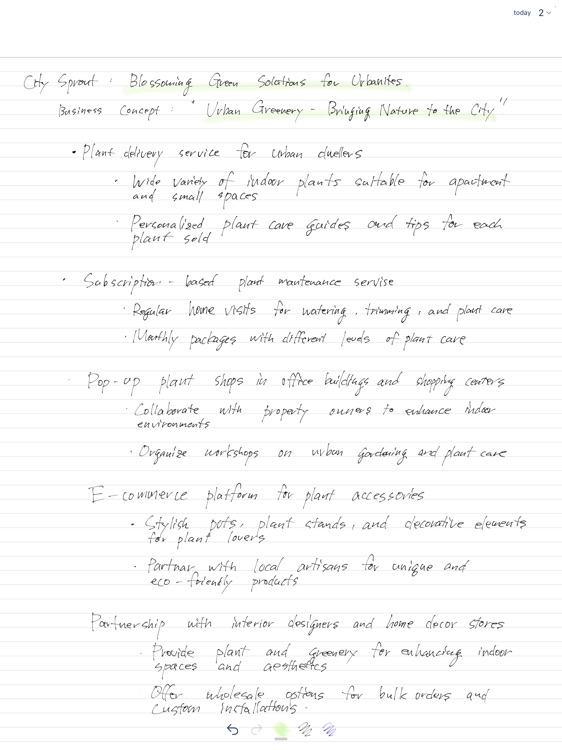 today 2
City Sprout : Blossoming Green Solutions for Urbanites.
Business Concept : "Urban Greenery - Bringing Nature to the City"
• Plant delivery service for urban dwellers
• Wide variety of indoor plants suitable for apartment
and small spaces
• Personalized plant care guides and tips for each
plant sold
• Subscription - based plant maintenance servise
• Regular home visits for watering, trimming, and plant care
• Monthly packages with different levels of plant care
• Pop-up plant shops in office buildings and shopping centers
• Collaborate with property owners to enhance indoor
environments
• Organize workshops on urban gardening and plant care
E-commerce platform for plant accessories
• Stylish pots, plant stands, and decorative elements
for plant lovers
• Partnar with local artisans for unique and
eco-friendly products
Partnership with interior designers and home decor stores
• Provide plant and greenery for enhancing indoor
spaces and aesthetics
Offer wholesale options for bulk orders and
custom installations.